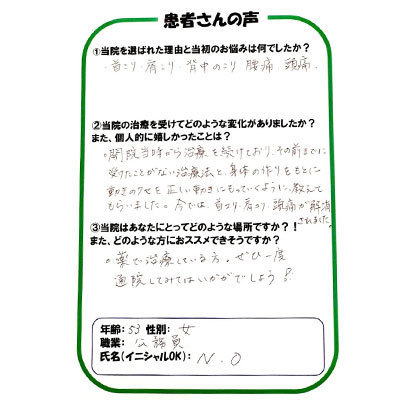 患者さんの声
①当院を選ばれた理由と当初のお悩みは何でしたか？
・首こり・肩こり・背中のこり 腰痛 頭痛
②当院の治療を受けてどのような変化がありましたか？
また、個人的に嬉しかったことは？
。開院当時から治療を続けており、その前までに
受けたことがない治療法と、身体の作りをもとに
動きのクセを正しい動きにもっていくように、教えて
もらいました。今では、首こり、肩こり、頭痛が解消
されました。
③当院はあなたにとってどのような場所ですか？！
また、どのような方におススメできそうですか？
。薬で治療している方。ぜひ一度
通院してみてはいかがでしょう？
年齢：53 性別：女
職業：公務員
氏名(イニシャルOK)：N.O